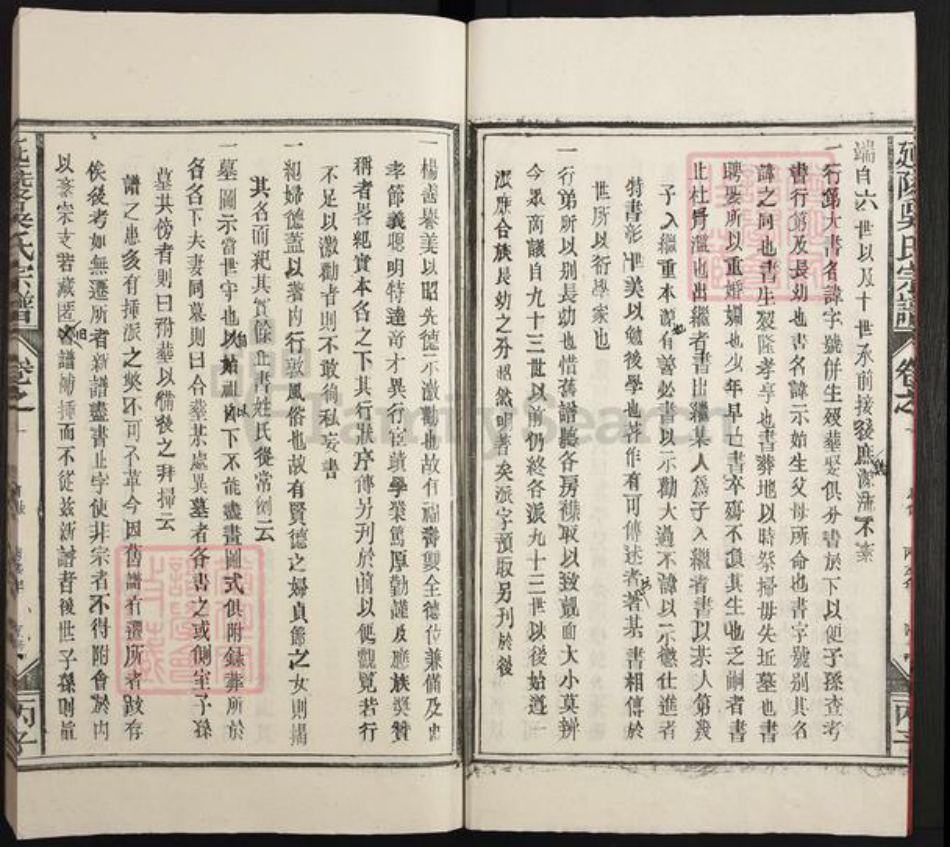 延陵吳氏宗譜 卷之
端自六世以及十世承前接後庶源流不紊
一行第大書名諱字號併生歿葬娶俱分書於下以便子孫查考
書行第及長幼也書名諱示始生父母所命也書字號别其名
諱之同也書生裂隆孝享也書葬地以時祭掃毋失近墓也書
聘娶所以重婚姻也少年早亡書卒殤不負其生也乏嗣者書
止杜冐濫也出繼者書出繼某人為子入繼者書以某人第幾
子入繼重本源也有善必書以示勸大過不諱以示懲仕進者
特書彰世美以勉後學也著作有可傳述者著某書相傳於
世所以衍學家也
一行第所以别長幼也惜舊譜據各房襍取以致覿面大小莫辨
今眾商議自九十三世以前仍終各派九十三世以後始遵一
派庶合族長幼之分昭然明著矣派字預取另刊於後
一楊善譽美以昭先德示激勸也故有福壽雙全德位兼備及忠
孝節義聰明特達奇才異行宦蹟學業篤厚勤謹及應族奬贊
稱者畧紀實本名之下其行狀序傳另刊於前以便觀覽若行
不足以激勸者則不敢徇私妄書
一紀婦德蓋以著内行敦風俗也故有賢德之婦貞節之女則揭
其名而紀其實餘止書姓氏從常例云
一墓圖示當世守也以始祖以下不能盡畫圖式俱附錄葬所於
各名下夫妻同墓則曰合葬某處異墓者各書之或側室子孫
墓共傍者則曰附葬以備後之拜掃云
譜之患多有揷派之獘不可不革今因舊譜有遷所者跋存
俟後考如無遷所者新譜盡書止字使非宗者不得附會於内
以紊宗支若藏匿旧譜勾揷而不從茲新譜者後世子孫則旨
延陵吳氏宗譜 卷之一
丙子
丙子
FamilySearch